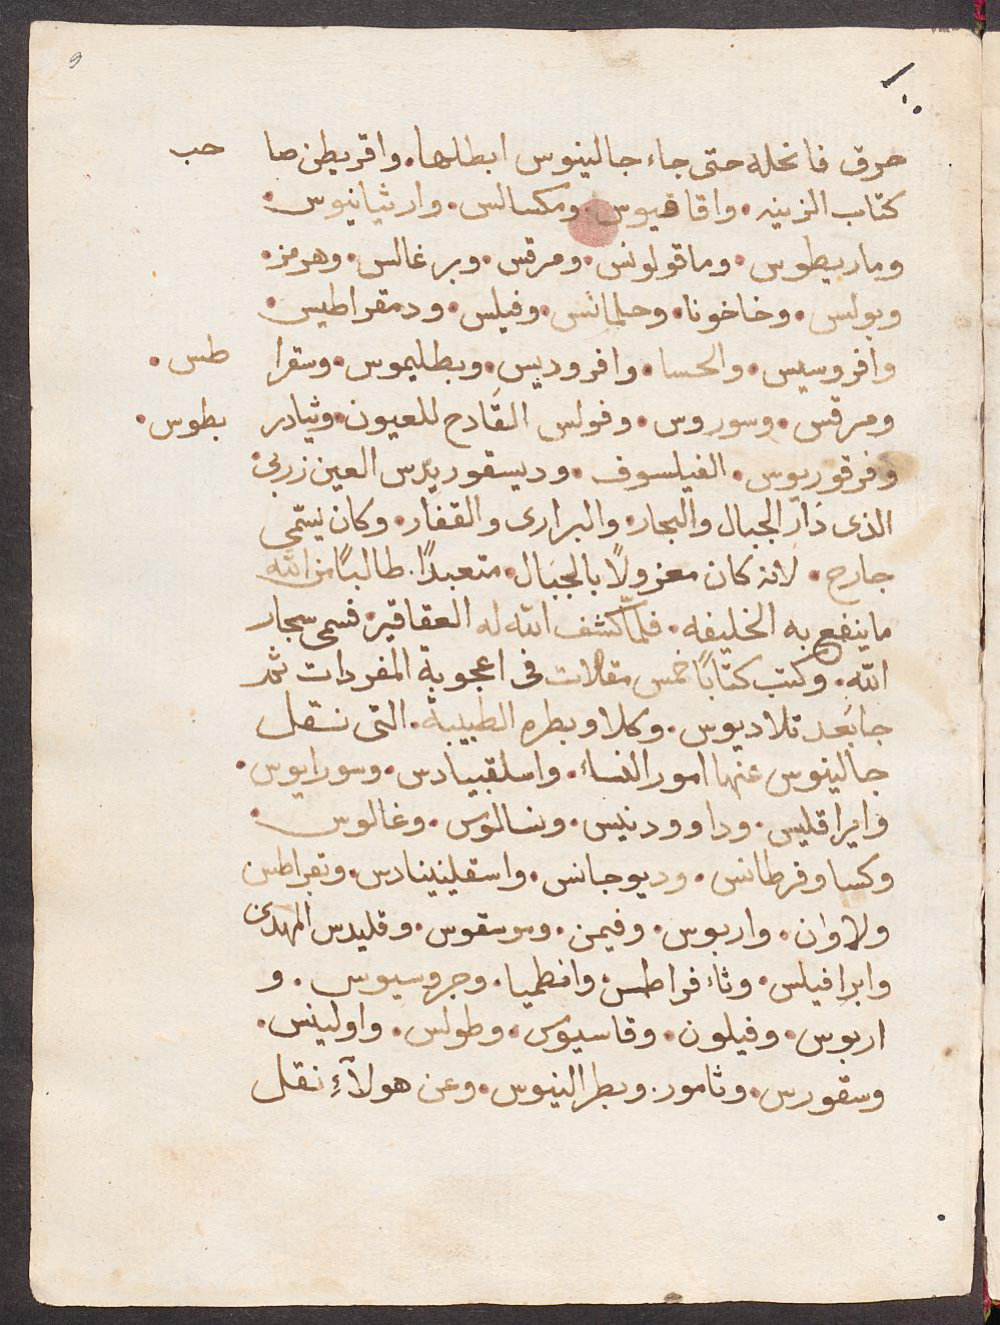 حرق فانحله حتى جاء جالينوس ابطلها. واقريطن صا حب
كتاب الزينه. واقاقيوس. ومكسالس. وارثيانيوس.
وماريطوس. وماقولونس. ومرقس. وبرغالس. وهرمز.
وبولس. وخاخونا. وحلمانس. وفيلس. ودمقراطيس.
وافروسيس. والحسا. وافروديس. وبطليموس. وسقرا طس.
ومرقس. وسوروس. وفولس القادح للعيون. وثيادر يطوس.
وفرقوريوس. الفيلسوف. وديسقوريدس العين زربى
الذى دار الجبال والبحار. والبرارى والقفار. وكان يسمى
جارح. لانه كان معزولاً بالجبال. متعبدًا. طالبًا من الله
ما ينفع به الخليفه. فلما كشف الله له العقاقير. فسمى سجار
الله. وكتب كتابًا خمس مقالات فى اعجوبة المفردات ثمر
جا بعد تلاديوس. وكلاوبطره الطبيبة. التى نقل
جالينوس عنها امور النساء. واسلقبيادس. وسورايوس.
وايراقليس. وداوودنيس. ونسالوس. وغالوس.
وكساوفرطانس. وديوجانس. واسقلينينادس. وتقراطس
ولاوان. واريوس. وفيمن. وموسقوس. وقليدس المهدى
وابرافيلس. وثاءفراطس. وانطميا. وجروسيوس. و
اريوس. وفيلون. وقاسيوس. وطولس. واولينس.
وسقورس. وثامور. وبطرالنيوس. وعن هولآء نقل
١٠٠
9